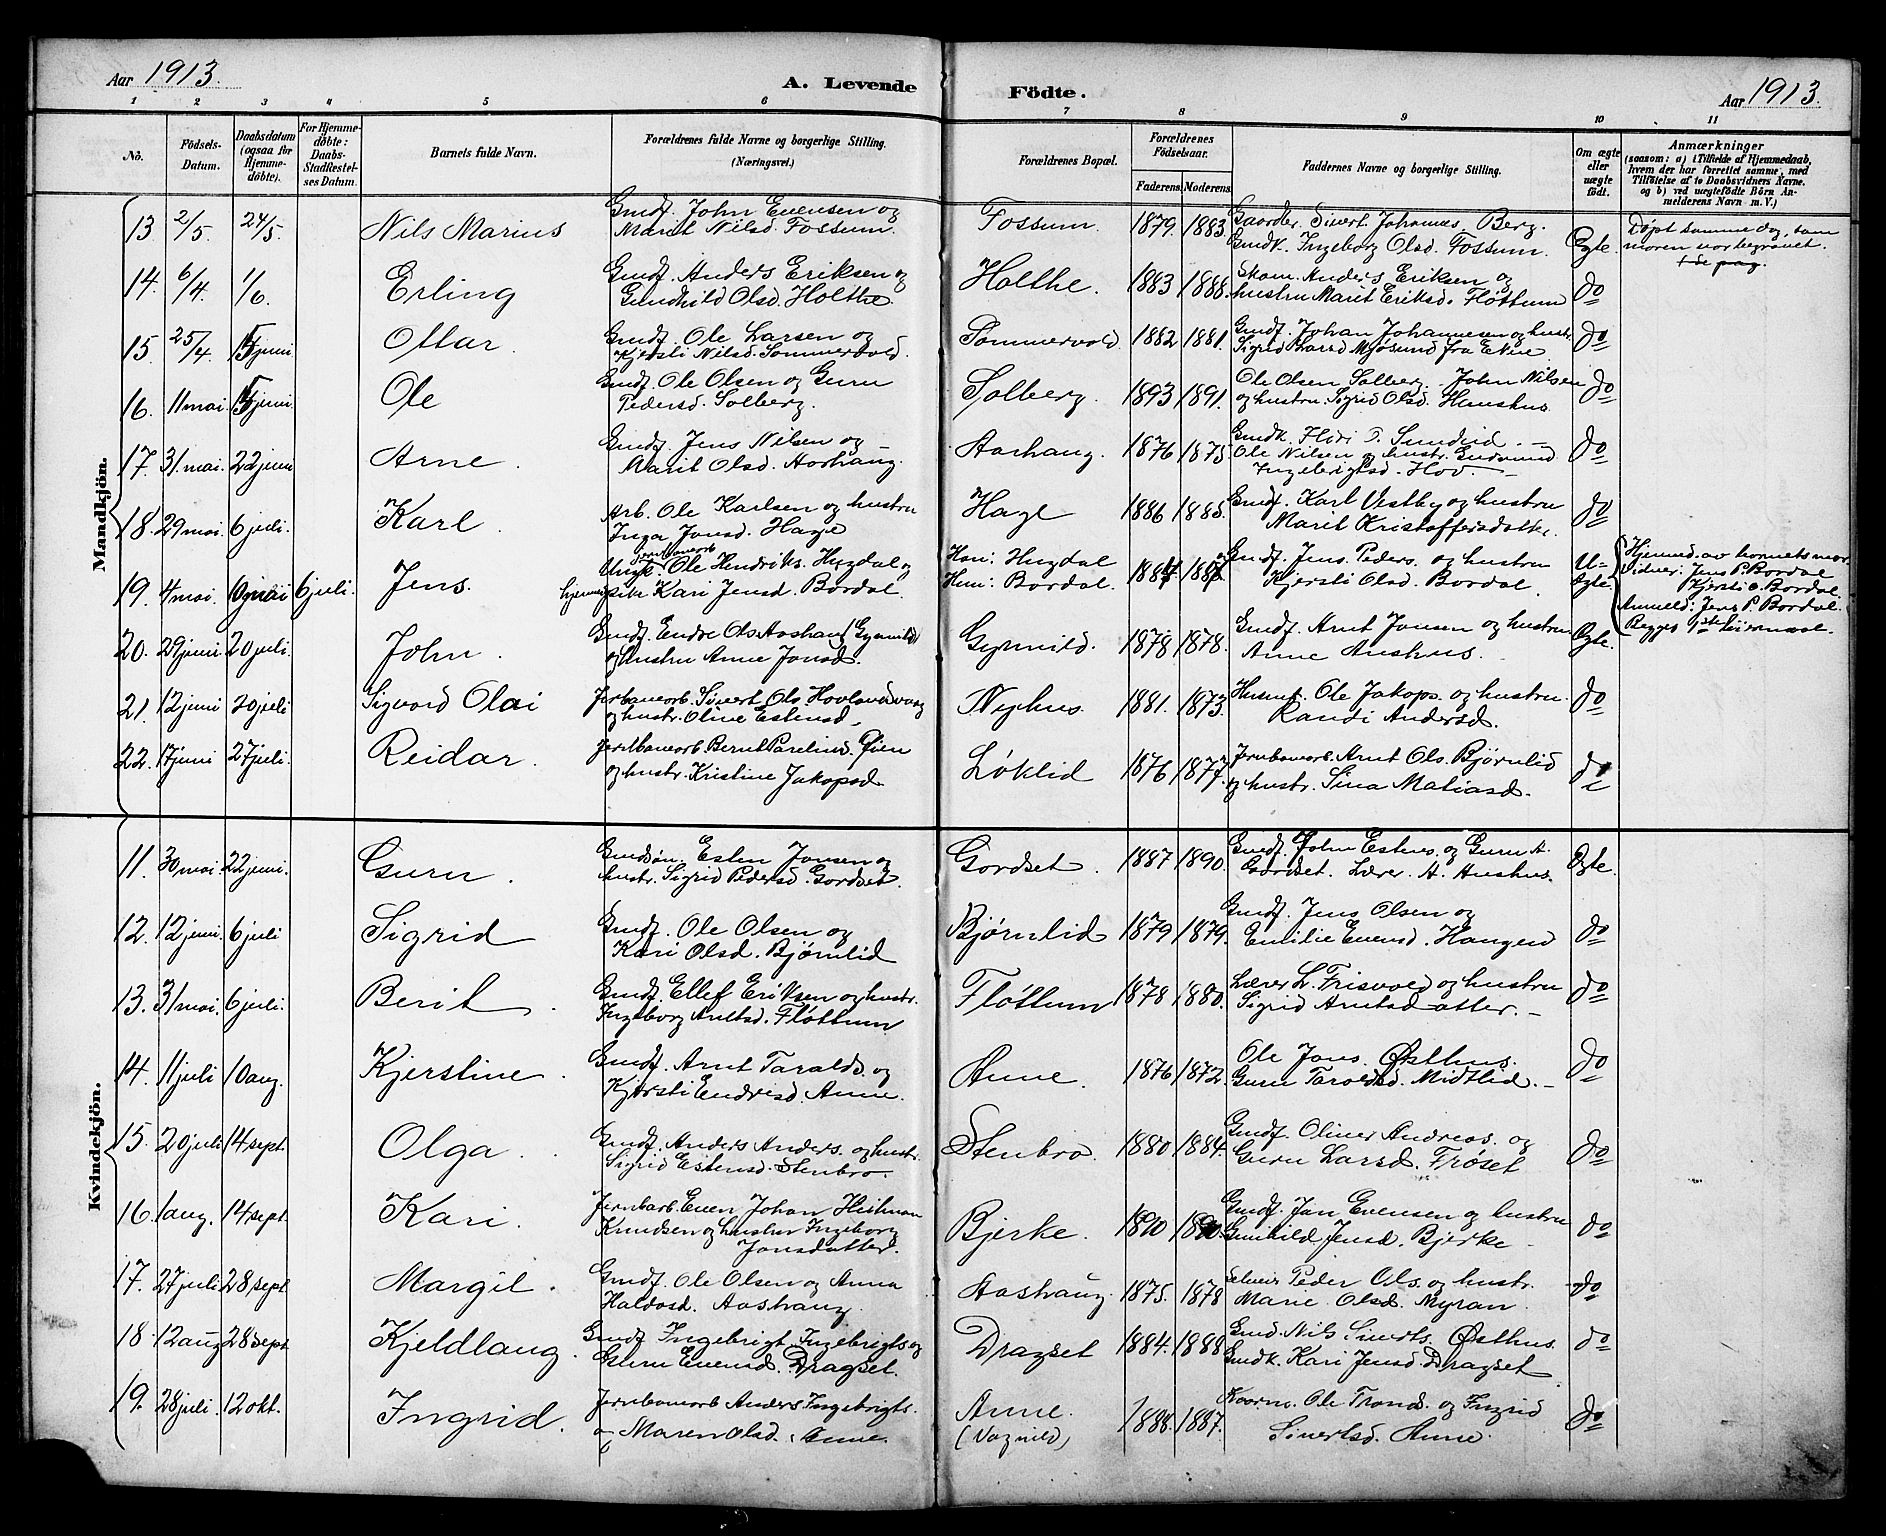 Aar 1913. A. Levende Födte. Aar 1913.
1 2 3 4 5 6 7 8 9 10 11
No. Födsels-Datum. Daabsdatum (ogsaa for Hjemme-döbte). For Hjemme-döbte: Daabs-Stadfestel-ses Datum. Barnets fulde Navn. Forældrenes fulde Navne og borgerlige Stilling. (Næringsvei.) Forældrenes Bopæl. Forældrenes Födselsaar. Faderens. Moderens. Faddernes Navne og borgerlige Stilling. Om ægte eller uægte födt. Anmærkninger
(saasom: a) i Tilfælde af Hjemmedaab, hvem der har forrettet samme, med Tilföielse af to Daabsvidners Navne, og b) ved uægtefödte Börn An-melderens Navn m. V.)
Mandkjön.
13 2/5. 24/5. Nils Marius Gmdf. John Evensen og
Marit Nilsd. Fossum. Fossum. 1879. 1883. Gaarder. Sivert Johannes Berg.
Gmdk. Ingeborg Olsd. Fossum. Egte. Døpt samme dag, som
moren var begravet.
14. 6/4. 1/6. Erling Gmdf. Anders Eriksen og
Gunhild Olsd. Holthe Holthe. 1883 1888. Anders Eriksen og
hustru Marit Eriksd. Fløttum do
15. 25/4. 15 juni Ottar. Gmdf. Ole Larsen og
Kjersti Nilsd. Sommervold. Sommervold. 1882 1881. Gmdf. Johan Johannesen og hustr.
Sigrid Larsd Mjøsund fra do
16. 11 mai 15 juni. Ole Gmdf. Ole Olsen og Guru
Pedersd. Solberg. Solberg. 1893 1891. Ole Olsen Solberg. John Nilsen
og hustru Sigrid Olsd. Haushus. do
17. 31 mai. 22 juni Arne. Gmdf. Jens Nilsen og
Marit Olsd. Aashaug. Aashaug. 1876 1875 Gmdk.
Ole Nilsen og hustr. Gudrund
Ingebrigtsd. Hov. do
18. 29 mai. 6 juli. Karl. Arb. Ole Karlsen og hustru
Inga Jonsd. Hage Hage 1886 1885. Gmdf. Karl Vestby og hustru
Marit Kristoffersdatter. do
19. 4 mai. 10 mai 6 juli. Jens. Ungk. Ole Hendriks. Hugdal og
pike Kari Jensd. Bordal. Han: Hugdal
Hun: Bordal. 1884 Gmdf. Jens Peders. og hustru
Kjersti Olsd. Bordal. U-
egte. Hjemmed. av barnets mor
Vidner: Jens P. Bordal
Kjersti O. Bordal.
Anmeld: Jens P. Bordal.
Begges 1ste leiermaal.
20. 29 juni 20 juli. John. Gmdf. Endre Ols. Aashaug (Gynnild)
og hustru Anne Jonsd. Gynnild. 1878 1878. Gmdf. Arnt Jonsen og hustru
Anne Aushus. Egte.
21. 12 juni 20 juli Sigvard Olai Jernbanearb. Sivert Ols. Hovlandsvang
og hustr. Oline Estensd. Nyhus. 1881. 1873. Husmf. Ole Jakops. og hustru
Randi Andersd. do
22. 17 juni 27 juli. Reidar. Jernbanearb. Bernt Parelius. Øien
og hustr. Kristine Jakopsd. Løklid 1876 1877. Jernbanearb. Arnt Ols. Bjørnlid
og hustr. Sina Matiasd. do
Kvindekjön.
11. 30 mai. 22 juni. Guru. Gmdsøn. Esten Jonsen og
hustr. Sigrid Pedersd. Gordset. Gordset. 1887 1890. Gmdf. John Estens. og Guru A.
Gordset. Lærer. A. Aushus. Egte.
12. 12 juni. 6 juli Sigrid Gmdf. Ole Olsen og
Kari Olsd. Bjørnlid Bjørnlid 1879 1879. Gmdf. Jens Olsen og
Emilie Evensd. Haugen do
13. 31 mai. 6 juli. Berit. Gmdf. Ellef Eriksen og hustr.
Ingeborg Arntsd. Fløttum Fløttum 1878 1880. Lærer L. Frisvold og hustru
Sigrid Arntsdatter. do
14. 11 juli 10 aug. Kjerstine. Gmdf. Arnt Taralds. og
Kjersti Endresd. Aune. Aune. 1876 1872. Ole Jons. Østhus.
Guru Taraldsd. Midtlid. do
15. 20 juli 14 sept Olga. Gmdf. Anders Anders. og hustr.
Sigrid Estensd. Stenbro. Stenbro. 1880 1884. Gmdf. Oliver Andreas. og
Guru Larsd. Trøset do
16. 1 aug. 14 sept. Kari. Jernbarb. Even Johan
Knudsen og hustru Ingeborg
Jonsdatter. Bjerke. 1890 1890. Gmdf. Jon Evensen og hustru
Gunhild Jensd. Bjerke do
17. 27 juli 28 sept Margit. Gmdf. Ole Olsen og Anna
Haldosd. Aashaug. Aashaug. 1875. 1878 Selveier Peder Ols. og hustr.
Marie Olsd. Myran. do
18 12 aug 28 sept Kjeldlaug. Gmdf. Ingebrigt Ingebrigts. og
Evensd. Dragset. Dragset 1884. 1888 Gmd. Nils Siverts. Østhus.
Gmdk. Kari Jensd. Dragset do
19. 28 juli. 12 okt. Ingrid. Jernbanearb. Anders Ingebrigts.
og Maren Olsd. Aune. Aune.
(Vognild) 1888. 1887. Ole Tronds. og Ingrid
Sivertsd. Aune. do